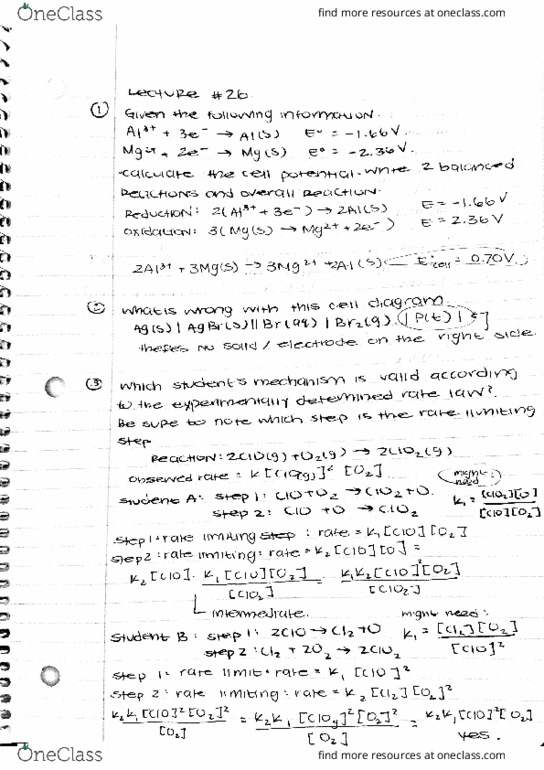 OneClass
find more resources at oneclass.com
Lecture #26
① Given the following information.
Al³⁺ + 3e⁻ → Al(s) E° = -1.66V.
Mg²⁺ + 2e⁻ → Mg(s) E° = -2.36V.
calculate the cell potential. Write 2 balanced
reactions and overall reaction.
Reduction: 2(Al³⁺ + 3e⁻) → 2Al(s) E = -1.66V
Oxidation: 3(Mg(s) → Mg²⁺ + 2e⁻) E = 2.36V
2Al³⁺ + 3Mg(s) → 3Mg²⁺ + 2Al(s) E°cell = 0.70V
② What is wrong with this cell diagram
Ag(s) | AgBr(s) || Br(aq) | Br₂(g) | P(t) |
theres no solid / electrode on the right side.
③ Which student's mechanism is valid according
to the experimentially determined rate law?
Be supe to note which step is the rate limiting
step
Reaction: 2ClO(g) + O₂(g) → 2ClO₂(g)
Observed rate = k[ClO(g)]² [O₂]
might need:
Student A: Step 1: ClO + O₂ → ClO₂ + O. k₁ = [ClO₂][O] / [ClO][O₂]
Step 2: ClO + O → ClO₂
Step 1: rate limiting step : rate = k₁ [ClO][O₂]
Step 2: rate limiting: rate = k₂ [ClO][O] =
k₂ [ClO] · k₁ [ClO][O₂] / [ClO₂] = k₁k₂ [ClO]²[O₂] / [ClO₂]
intermediate.
might need:
Student B: Step 1: 2ClO → Cl₂ + O k₁ = [Cl₂][O₂] / [ClO]²
Step 2: Cl₂ + 2O₂ → 2ClO₂
Step 1: rate limit: rate = k₁ [ClO]²
Step 2: rate limiting: rate = k₂ [Cl₂][O₂]²
k₂k₁[ClO]²[O₂]² / [O₂] = k₂k₁[ClO]²[O₂]² / [O₂] = k₂k₁[ClO]²[O₂]
yes.
OneClass
find more resources at oneclass.com